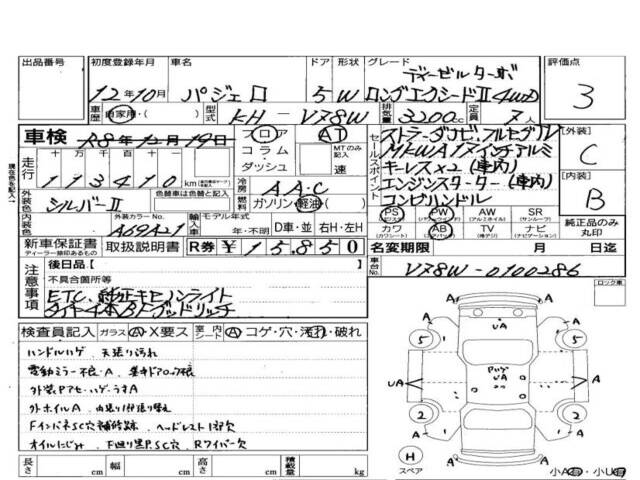 出品番号 初度登録年月 車名 ドア 形状 グレード 評価点
ディーゼルターボ
12年10月 パジェロ 5 W ロングエクシードⅡ4WD 3
車歴 自家用・( ) 型式 KH-V78W 排気量 3200cc 定員 7人
車検 R8年12月19日 フロア AT
走行 十万千百十 コラム・ダッシュ MTのみ記入 速
113410 km
冷房 AAC
外装色 シルバーⅡ 色替車は色替と記入 燃料 ガソリン・軽油・( )
内装色 外装カラーNo. A69A21 輸入車記入 モデル年式 年・不明 D車・並 右H・左H
セールスポイント
ストラーダナビ フルセグTV
MKWA17インチアルミ
キーレス×2(車内)
エンジンスターター(車内)
コンビハンドル
PS PW AW SR
カワ AB TV ナビ
[外装] C
[内装] B
純正品のみ丸印
新車保証書 取扱説明書 R券 ¥15,850 名変期限 月 日迄
ディーラー捺印あるもの
注意事項 後日品[ ] 車台No. V78W-0100286
不具合箇所等 ロック車
ETC、純正キセノンライト
タイヤ4本BFグッドリッチ
検査員記入 ガラス A・X要ス 室内シート A・コゲ・穴・汚れ・破れ
ハンドルハゲ、天張り汚れ
電動ミラー不良・A、集中ドアロック不良
外装Pアセ・ハゲ・うすA
外ホイルA
FインパネSC穴補修跡、ヘッドレスト1部欠
オイルにじみ、F廻り黒P、SC穴、Rワイパー欠
A A A
UA
5 5
A UA A
2 2
A A A
H スペア 小A有・小U有
長さ cm 幅 cm 高さ cm 積載量 kg